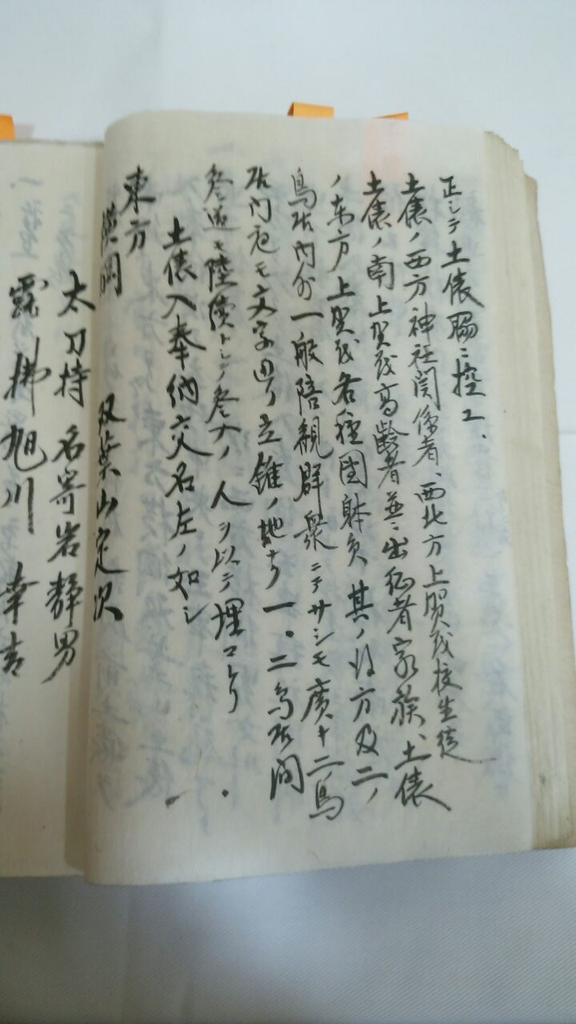 正シテ土俵陽ニ控エ、
土俵ノ西方神社関係者、西北方上賀茂校生徒
土俵ノ南上賀茂高齢者並ニ出征者家族、土俵
ノ東方上賀茂各種団体員其ノ後方及二ノ
鳥居内外一般陪観群衆ニテサシモ広キ二鳥
居内庭モ文字通リ立錐ノ地ナク一、二鳥居間
参道モ陸続トシテ参ナノ人ヲ以テ埋マリ
土俵入奉納交名左ノ如シ
東方
横綱 双葉山定次
太刀持 名寄岩静男
露拂 旭川幸吉